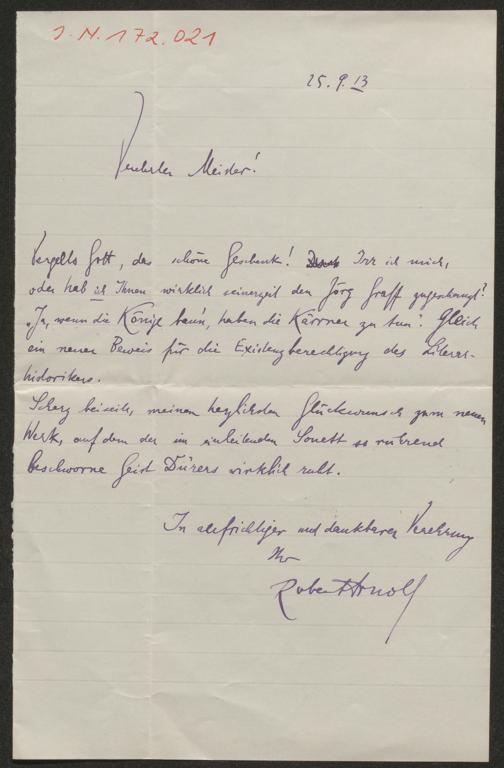 J. N. 172.021
25. 9. 13
Verehrter Meister!
Vergelts Gott, das schöne Geschenk! Irr ich mich,
oder hab ich Ihnen wirklich seinerzeit den Jörg Graff zugeschanzt?
„Ja, wenn die Könige bau'n, haben die Kärrner zu tun". Gleich
ein neuer Beweis für die Existenzberechtigung des Literar-
historikers.
Scherz beiseite, meinen herzlichsten Glückwunsch zum neuen
Werk, auf dem der im einleitenden Sonett so rührend
beschworne Geist Dürers wirklich ruht.
In aufrichtiger und dankbarer Verehrung
Ihr
Robert Arnold